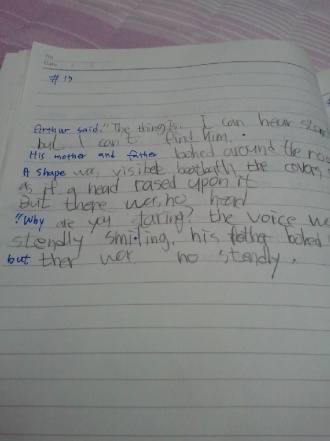 No
Date
# 13
Earthur said. "The thing is. I can hear sten
but I can't find him.
His mother and father looked around the roo
A shape was visibel beatbath the covers,
as if a head rased upon it
but there was no head
"Why are you staring? the voice wa
stendly smiling, his father looked
but ther was no stendly.